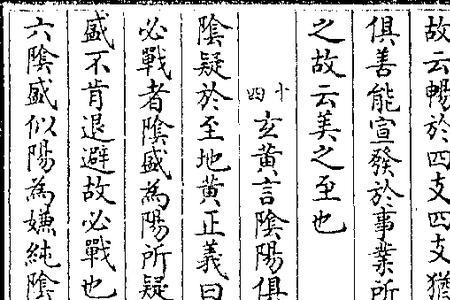 故云暢於四支四支猶
俱善能宣發於事業所
之故云美之至也
十四
玄黃言陰陽俱
陰疑於至地黃正義曰
必戰者陰盛為陽所疑
盛不肯退避故必戰也
六陰盛似陽為嫌純陰